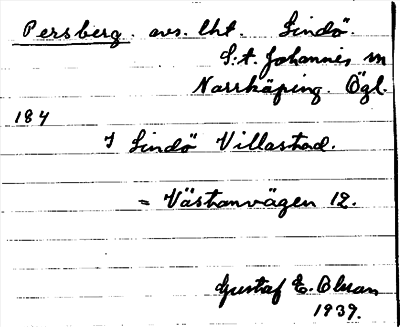 Persberg. avs. lht. Lindö.
S:t. Johannis m
Norrköping. Ögl.
184
I Lindö Villastad.
= Västanvägen 12.
Gustaf E. Olsson
1939.